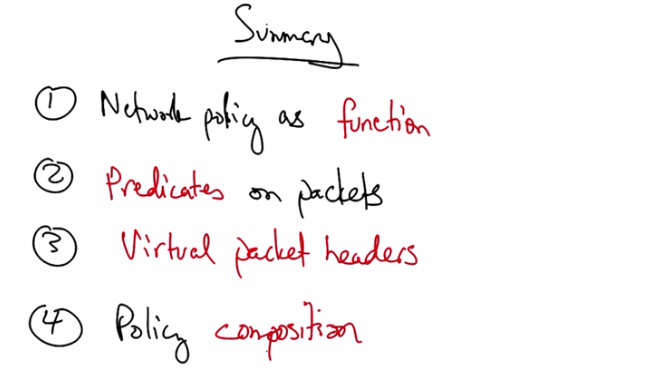 Summary
① Network policy as function
② Predicates on packets
③ Virtual packet headers
④ Policy composition